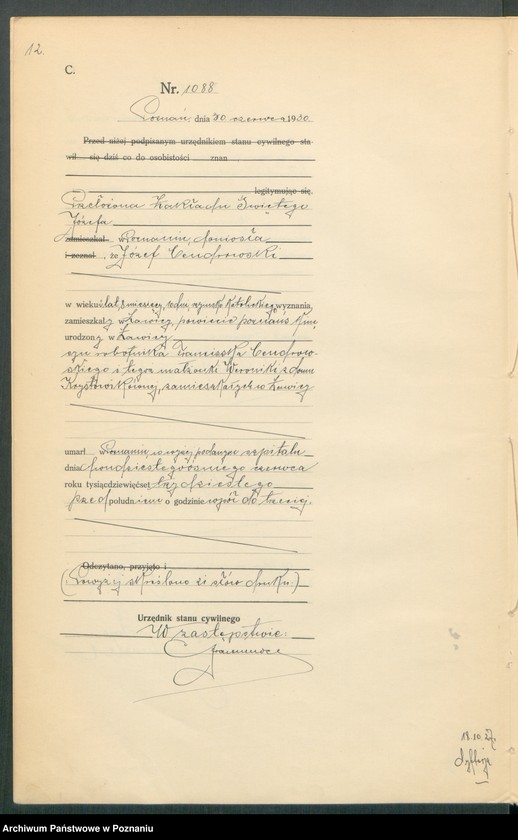 12.
C.
Nr. 1088
Poznań, dnia 30 czerwca 1930
Przed niżej podpisanym urzędnikiem stanu cywilnego sta
wił się dziś co do osobistości znan
legitymując się
Przełożona Zakładu Świętego
Józefa
zamieszkał w Poznaniu, doniosła
i zeznał, że Józef Cendrowski
w wieku lat, 8 miesięcy, rzymsko katolickiego wyznania,
zamieszkały w Ławicy, powiecie
urodzony w Ławicy
syn robotnika Franciszka Cendrow-
skiego i tegoż małżonki Weroniki z domu
zamieszkałych w Ławicy
umarł w Poznaniu, w wyżej podanym szpitalu
dnia dwudziestego ósmego czerwca
roku tysiącdziewięćset trzydziestego
przed południem o godzinie wpół do trzeciej.
Odczytano, przyjęto i
(Powyżej skreślono słów druku.)
Urzędnik stanu cywilnego
W zastępstwie:
18.10.27.
Archiwum Państwowe w Poznaniu